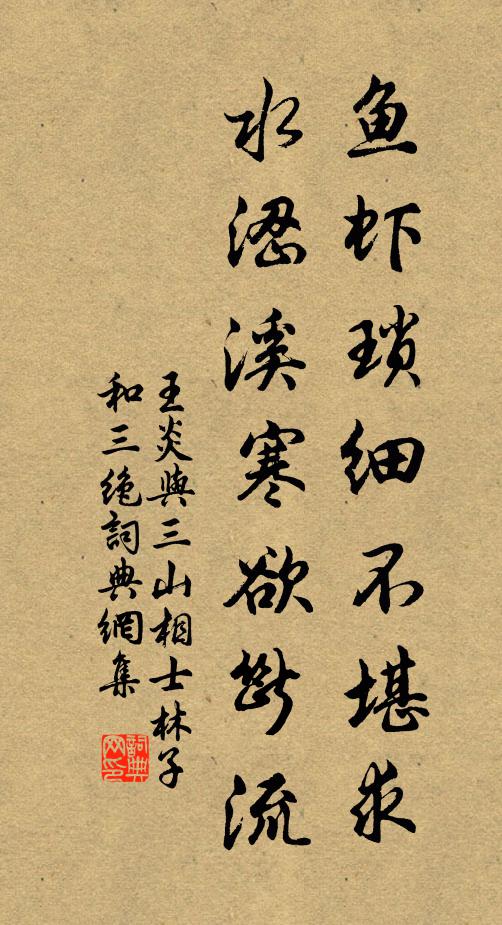 鱼虾琐细不堪求
水涩溪寒欲断流
王炎與三山相士林子
和三绝詞典網集
詞典
网印